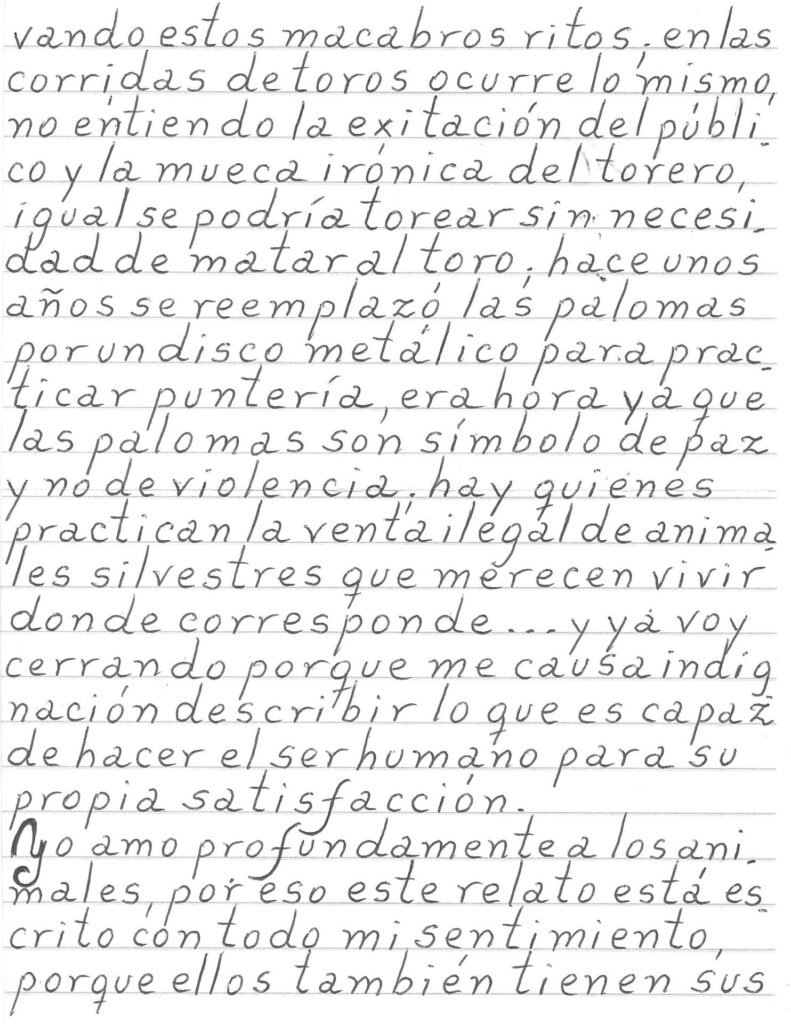 vando estos macabros ritos; en las
corridas de toros ocurre lo mismo,
no entiendo la exitación del públi_
co y la mueca irónica del torero,
igual se podría torear sin necesi_
dad de matar al toro; hace unos
años se reemplazó las palomas
por un disco metálico para prac_
ticar puntería, era hora ya que
las palomas son símbolo de paz
y no de violencia; hay quienes
practican la venta ilegal de anima_
les silvestres que merecen vivir
donde corresponde... y ya voy
cerrando porque me causa indig_
nación describir lo que es capaz
de hacer el ser humano para su
propia satisfacción.
Yo amo profundamente a los ani_
males, por eso este relato está es_
crito con todo mi sentimiento,
porque ellos también tienen sus